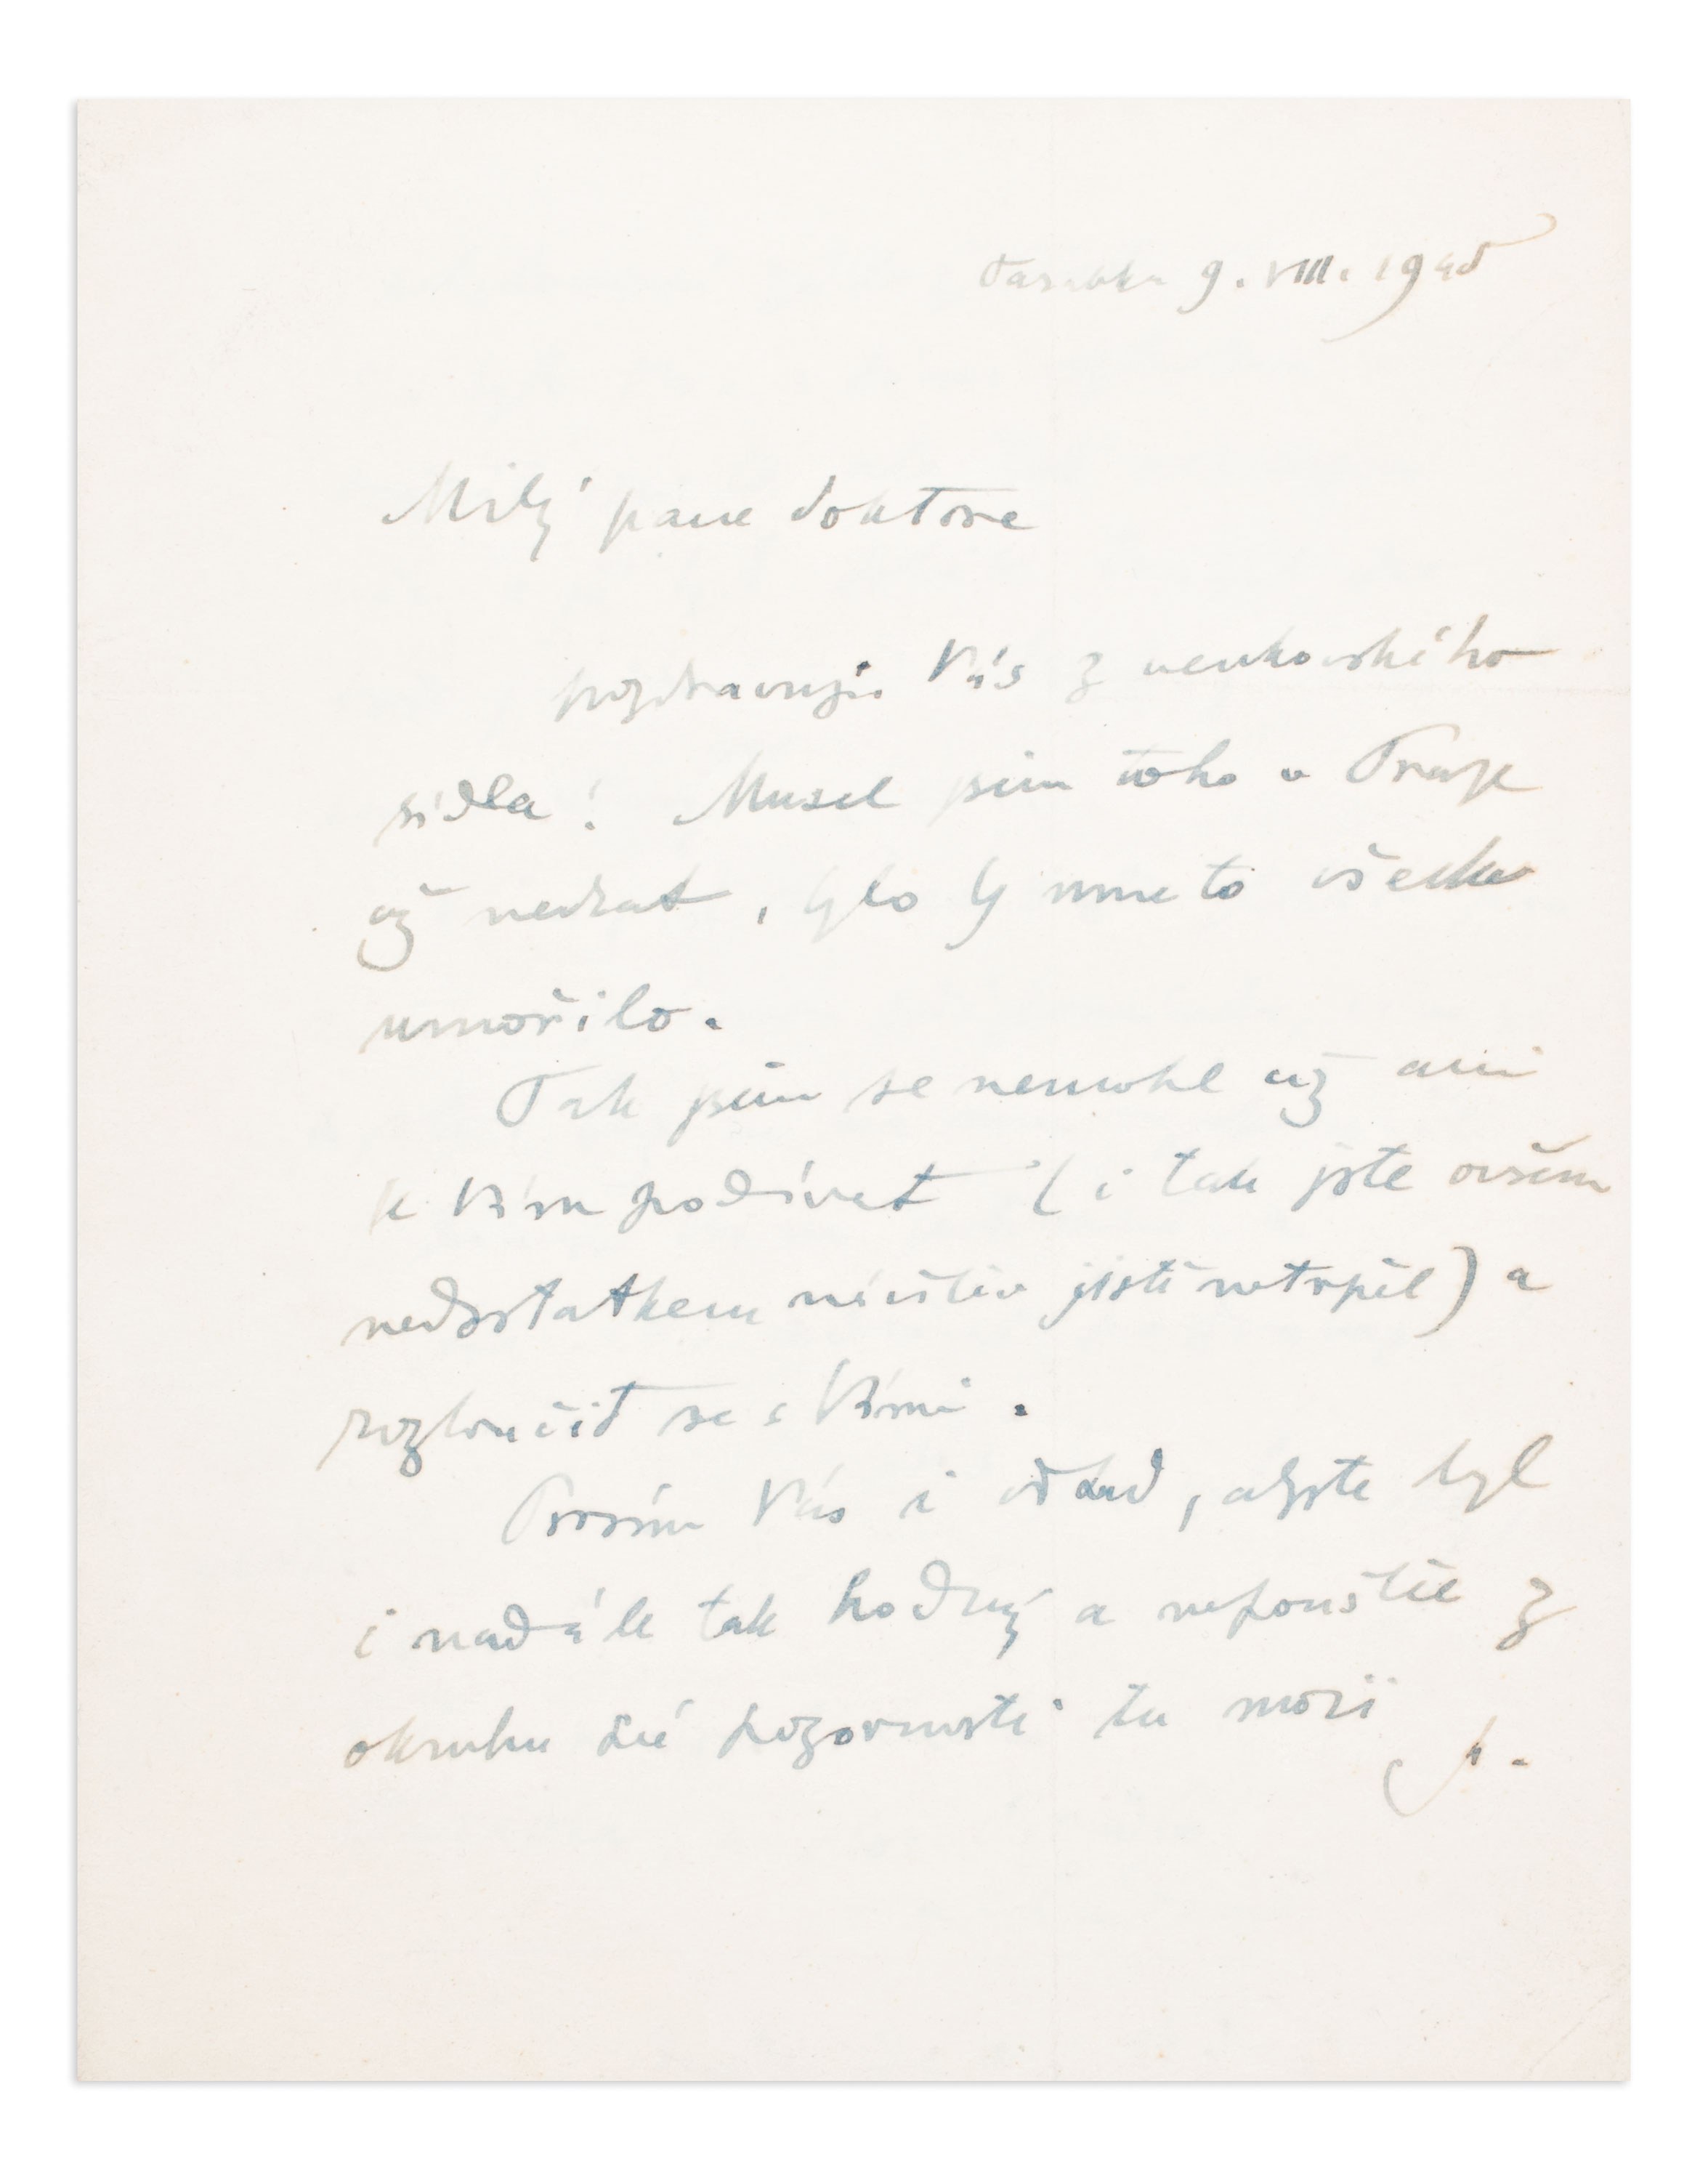 9. VIII. 1945
Milý pane doktore
pozdravuji Vás z venkovského
sídla! Musel jsem toho v Praze
už nechat, bylo by mne to všecko
umořilo.
Tak jsem se nemohl už ani
k Vám podívat (i tak jste ovšem
nedostatkem návštěv jistě netrpěl) a
rozloučit se s Vámi.
Prosím Vás i odtud, abyste byl
i nadále tak hodný a nepouštěl z
okruhu své pozornosti tu moji